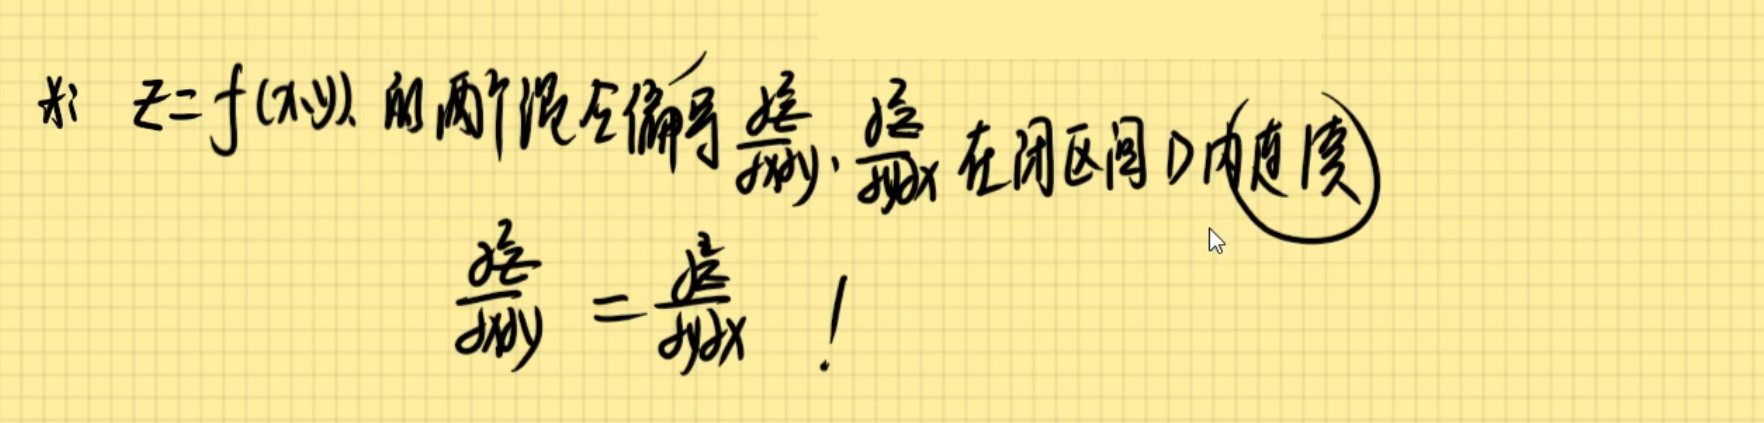 ※: z=f(x,y). 的两个混合偏导 ∂²z/∂x∂y, ∂²z/∂y∂x 在闭区间D内连续
∂²z/∂x∂y = ∂²z/∂y∂x !